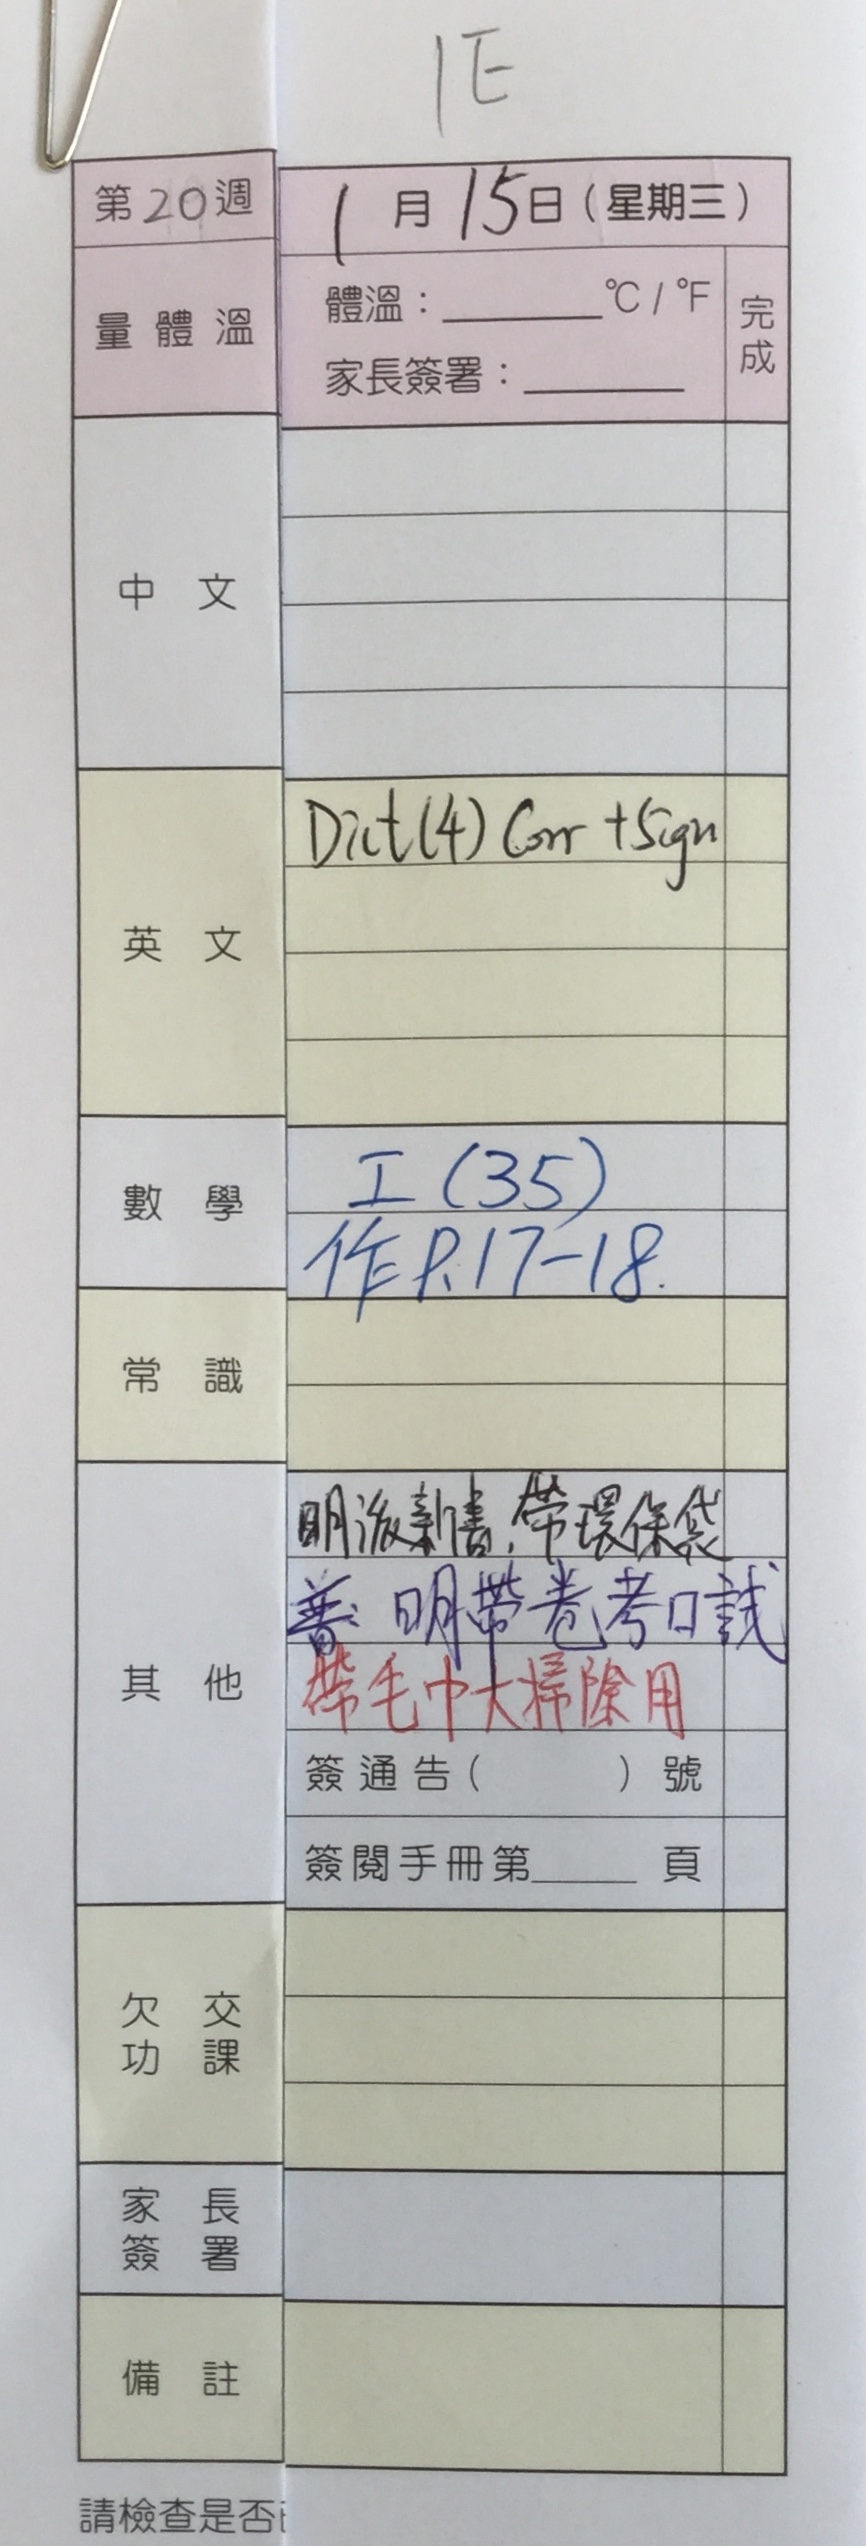 1E
第20週 1月15日(星期三)
量體溫 體溫：______°C / °F 完成
家長簽署：______
中文
英文 Dict(4) Corr + Sign
數學 工(35)
作P.17-18.
常識
其他 明派新書,帶環保袋
普：明帶卷考口試
帶毛巾大掃除用
簽通告( )號
簽閱手冊第____頁
欠交功課
家長簽署
備註
請檢查是否